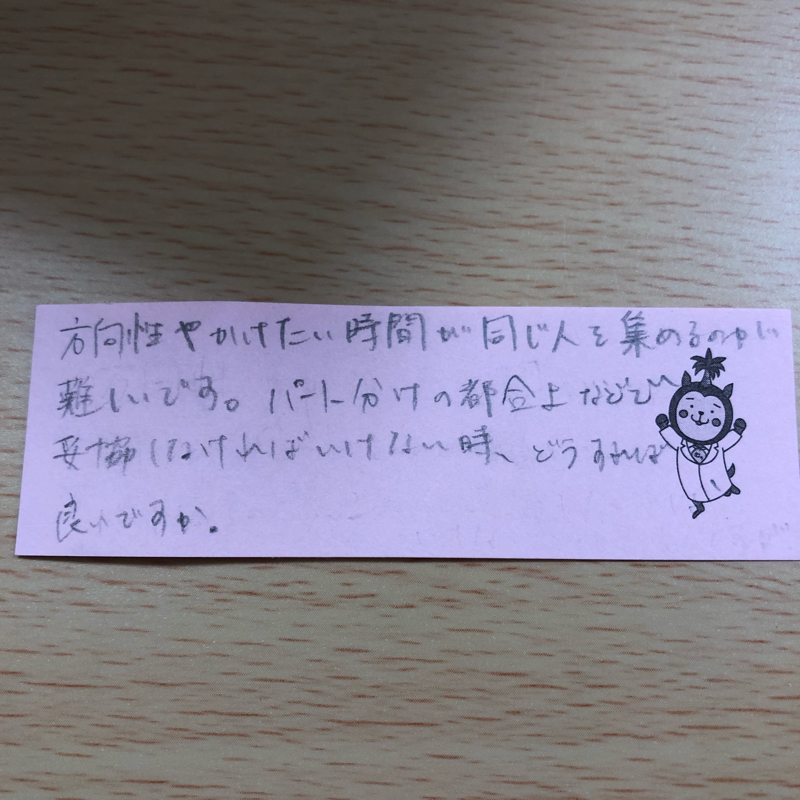 方向性やかけたい時間が同じ人を集めるのがに
難しいです。パート分けの都合上などで
妥協しなければいけない時、どうすれば
良いですか。